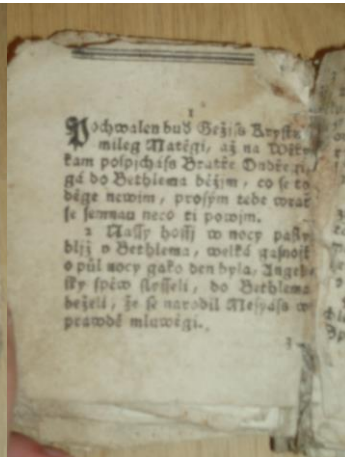 1
Pochwalen bud Gežiss Krystus
mileg Matěgi, až na Wěky
kam pospjchass Bratře Ondřegi,
gá do Bethlema běžjm, co se to
děge newjm, prosým tebe wrať
se semnau neco ti powjm.
2 Nassy hossj w nocy pasly
bljž v Bethlema, welká gasnost
o půl nocy gako den byla, Angel-
sky spěw slesseli, do Bethlema
beželi, že se narodil Messyáss w
prawdě mluwěgi.